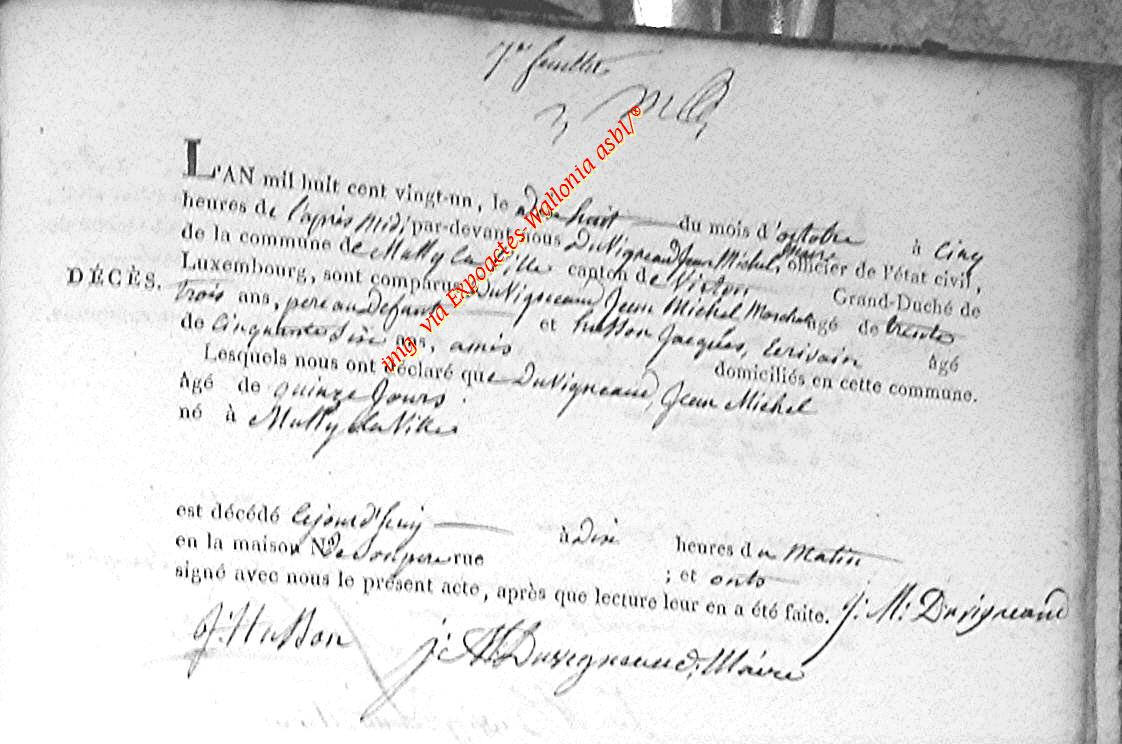 7e feuillet
L'AN mil huit cent vingt-un, le dix huit du mois d'octobre à cinq
heures de l'après midi, par-devant nous DuVigneaud Jean Michel, Maire officier de l'état civil,
de la commune de Mussy la Ville canton de Virton Grand-Duché de
Luxembourg, sont comparus DuVigneaud Jean Michel Marchal âgé de trente
DÉCÈS.
trois ans, père au Defunt et husson Jacques, Ecrivain âgé
de Cinquante Six ans, amis domiciliés en cette commune.
Lesquels nous ont déclaré que DuVigneaud, Jean Michel
âgé de quinze Jours
né à Mussy la Ville
est décédé cejourd'huy à Dix heures du Matin
en la maison N° de son pere rue ; et onts
signé avec nous le présent acte, après que lecture leur en a été faite. J. M. Duvigneaud
J. Husson J. M. Duvigneaud, Maire
img via Expoactes-Wallonia asbl/®